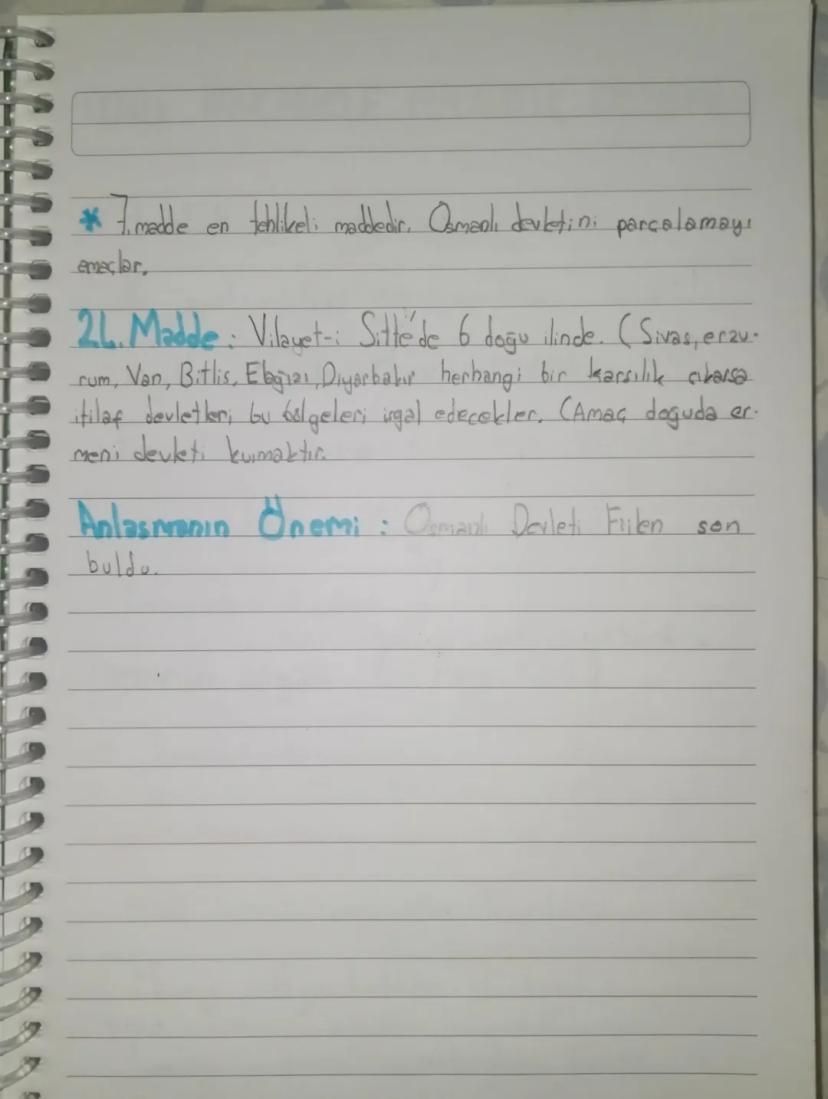 * 7. madde en tehlikeli maddedir. Osmanlı devletini parçalamayı
amaçlar.
24. Madde: Vilayet-i Sitte'de 6 doğu ilinde. (Sivas, erzu-
rum, Van, Bitlis, Elağızı, Diyarbakır herhangi bir karsılık cıkarsa
itilaf devletleri bu bölgeleri irgal edecekler. (Amaç doguda er-
meni devleti kurmaktır.
Anlasmanın Önemi: Osmanlı Devleti Fiilen son
buldu.